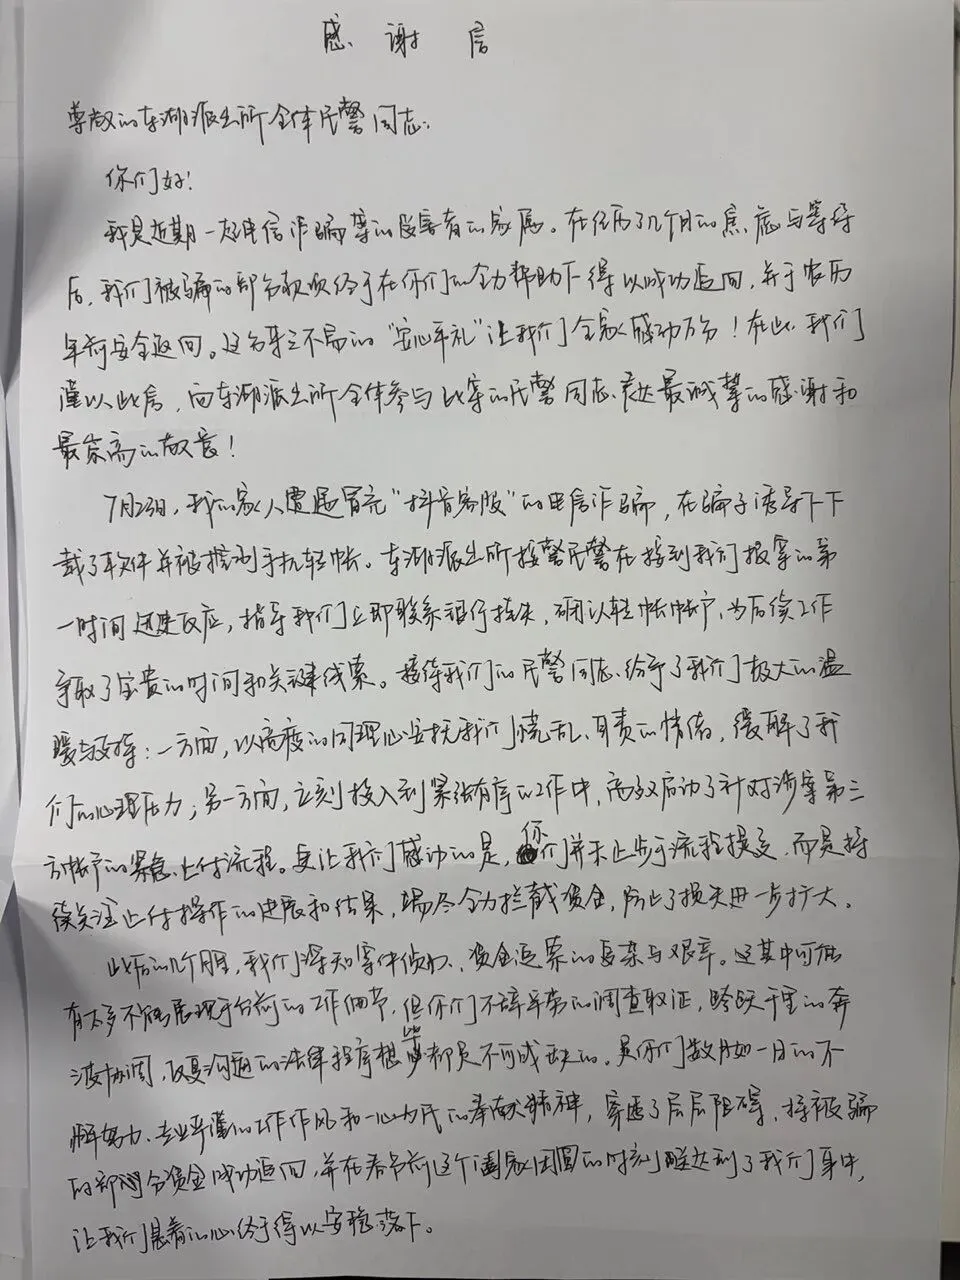 感谢信
尊敬的东湖派出所全体民警同志:
你们好!
我是近期一起电信诈骗案的受害者的家属。在经历了几个月的焦虑与等待
后,我们被骗的部分款项终于在你们的全力帮助下得以成功追回,并于农历
年前安全返回。这份来之不易的“安心年礼”让我们全家感动万分!在此,我们
谨以此信,向东湖派出所全体参与此案的民警同志、表达最诚挚的感谢和
最崇高的敬意!
7月23日,我的家人遭遇冒充“抖音客服”的电信诈骗,在骗子诱导下下
载了软件并被控制手机转帐。东湖派出所接警民警在接到我们报案的第
一时间迅速反应,指导我们立即联系银行挂失,确认转帐帐户,为后续工作
争取了宝贵的时间和关键线索。接待我们的民警同志、给予了我们极大的温
暖与支持:一方面,以高度的同理心安抚我们慌乱、自责的情绪,缓解了我
们的心理压力;另一方面,立刻投入到紧张有序的工作中,高效启动了针对涉案第三
方帐户的紧急止付流程。更让我们感动的是,你们并未止步于流程提交,而是持
续关注止付操作的进展和结果,竭尽全力拦截资金,防止了损失进一步扩大。
此后的几个月里,我们深知案件侦办、资金追索的复杂与艰辛。这其中可能
有太多不能展现于台前的工作细节,但你们不辞辛劳的调查取证,跨越千里的奔
波协调,反复沟通的法律程序想必都是不可或缺的。是你们数月如一日的不
懈努力、专业严谨的工作作风和一心为民的奉献精神,穿透了层层阻碍,将被骗
的部分资金成功追回,并在春节前这个阖家团圆的时刻送达到了我们手中,
让我们悬着的心终于得以安稳落下。